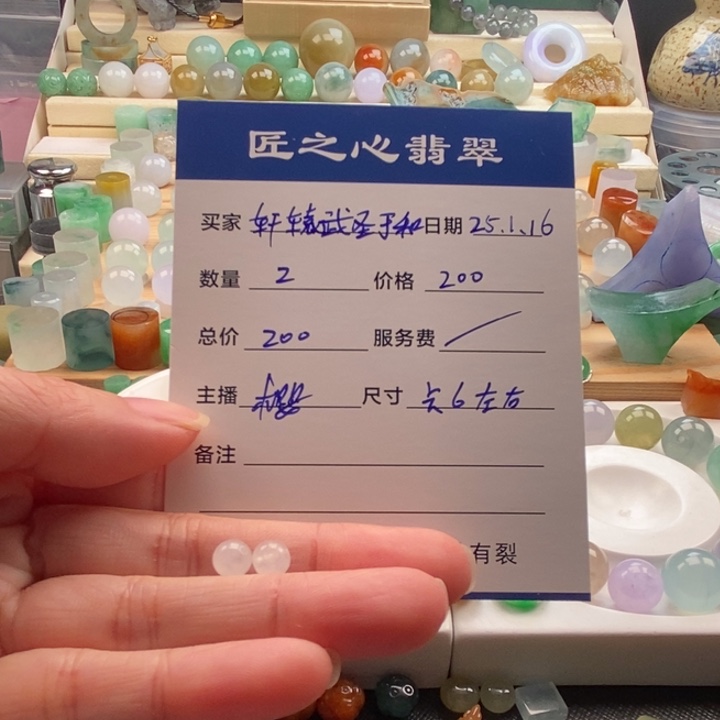 匠之心翡翠
买家 轩辕武圣于和 日期 25.1.16
数量 2 价格 200
总价 200 服务费 /
主播 尺寸 6左右
备注
有裂